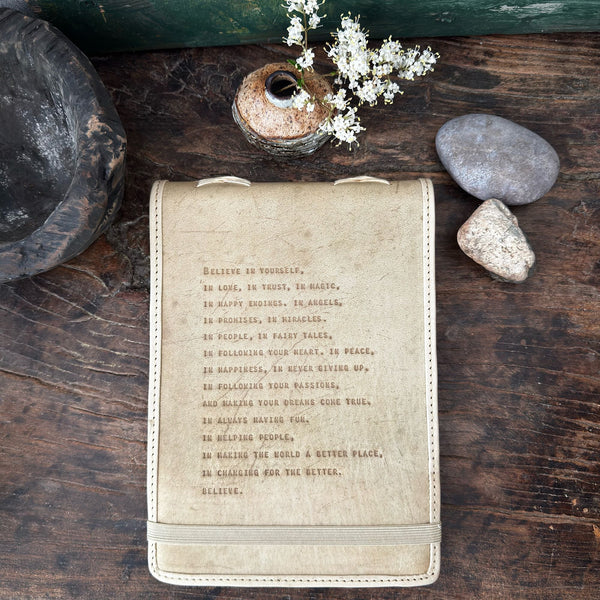 BELIEVE IN YOURSELF,
IN LOVE, IN TRUST, IN MAGIC,
IN HAPPY ENDINGS. IN ANGELS,
IN PROMISES, IN MIRACLES.
IN PEOPLE, IN FAIRY TALES,
IN FOLLOWING YOUR HEART. IN PEACE,
IN HAPPINESS, IN NEVER GIVING UP,
IN FOLLOWING YOUR PASSIONS,
AND MAKING YOUR DREAMS COME TRUE.
IN ALWAYS HAVING FUN.
IN HELPING PEOPLE,
IN MAKING THE WORLD A BETTER PLACE,
IN CHANGING FOR THE BETTER.
BELIEVE.